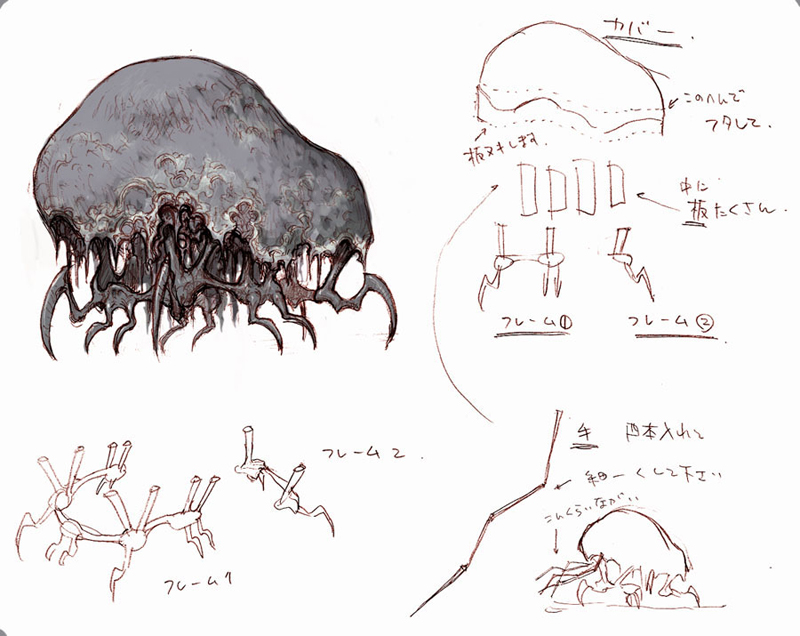 カバー.
このへんで
フタして.
板ヌキします.
中に
板たくさん.
フレーム①
フレーム②
フレーム2.
フレーム1
手 四本入れて
細ーくして下さい
こんくらいながい